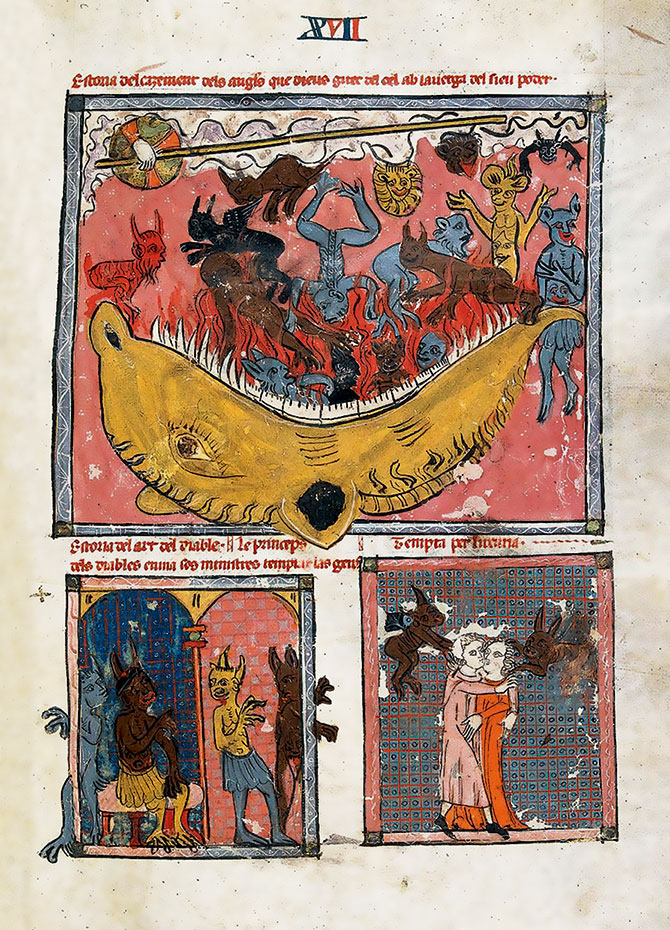 XVII
Estoria del cazement dels angls que dieus gitet del cel ab lauerga del sieu poder.
Estoria del art del diable. Le princeps
dels diables enuia sos ministres temptar las gens
Tempta per luxuria.